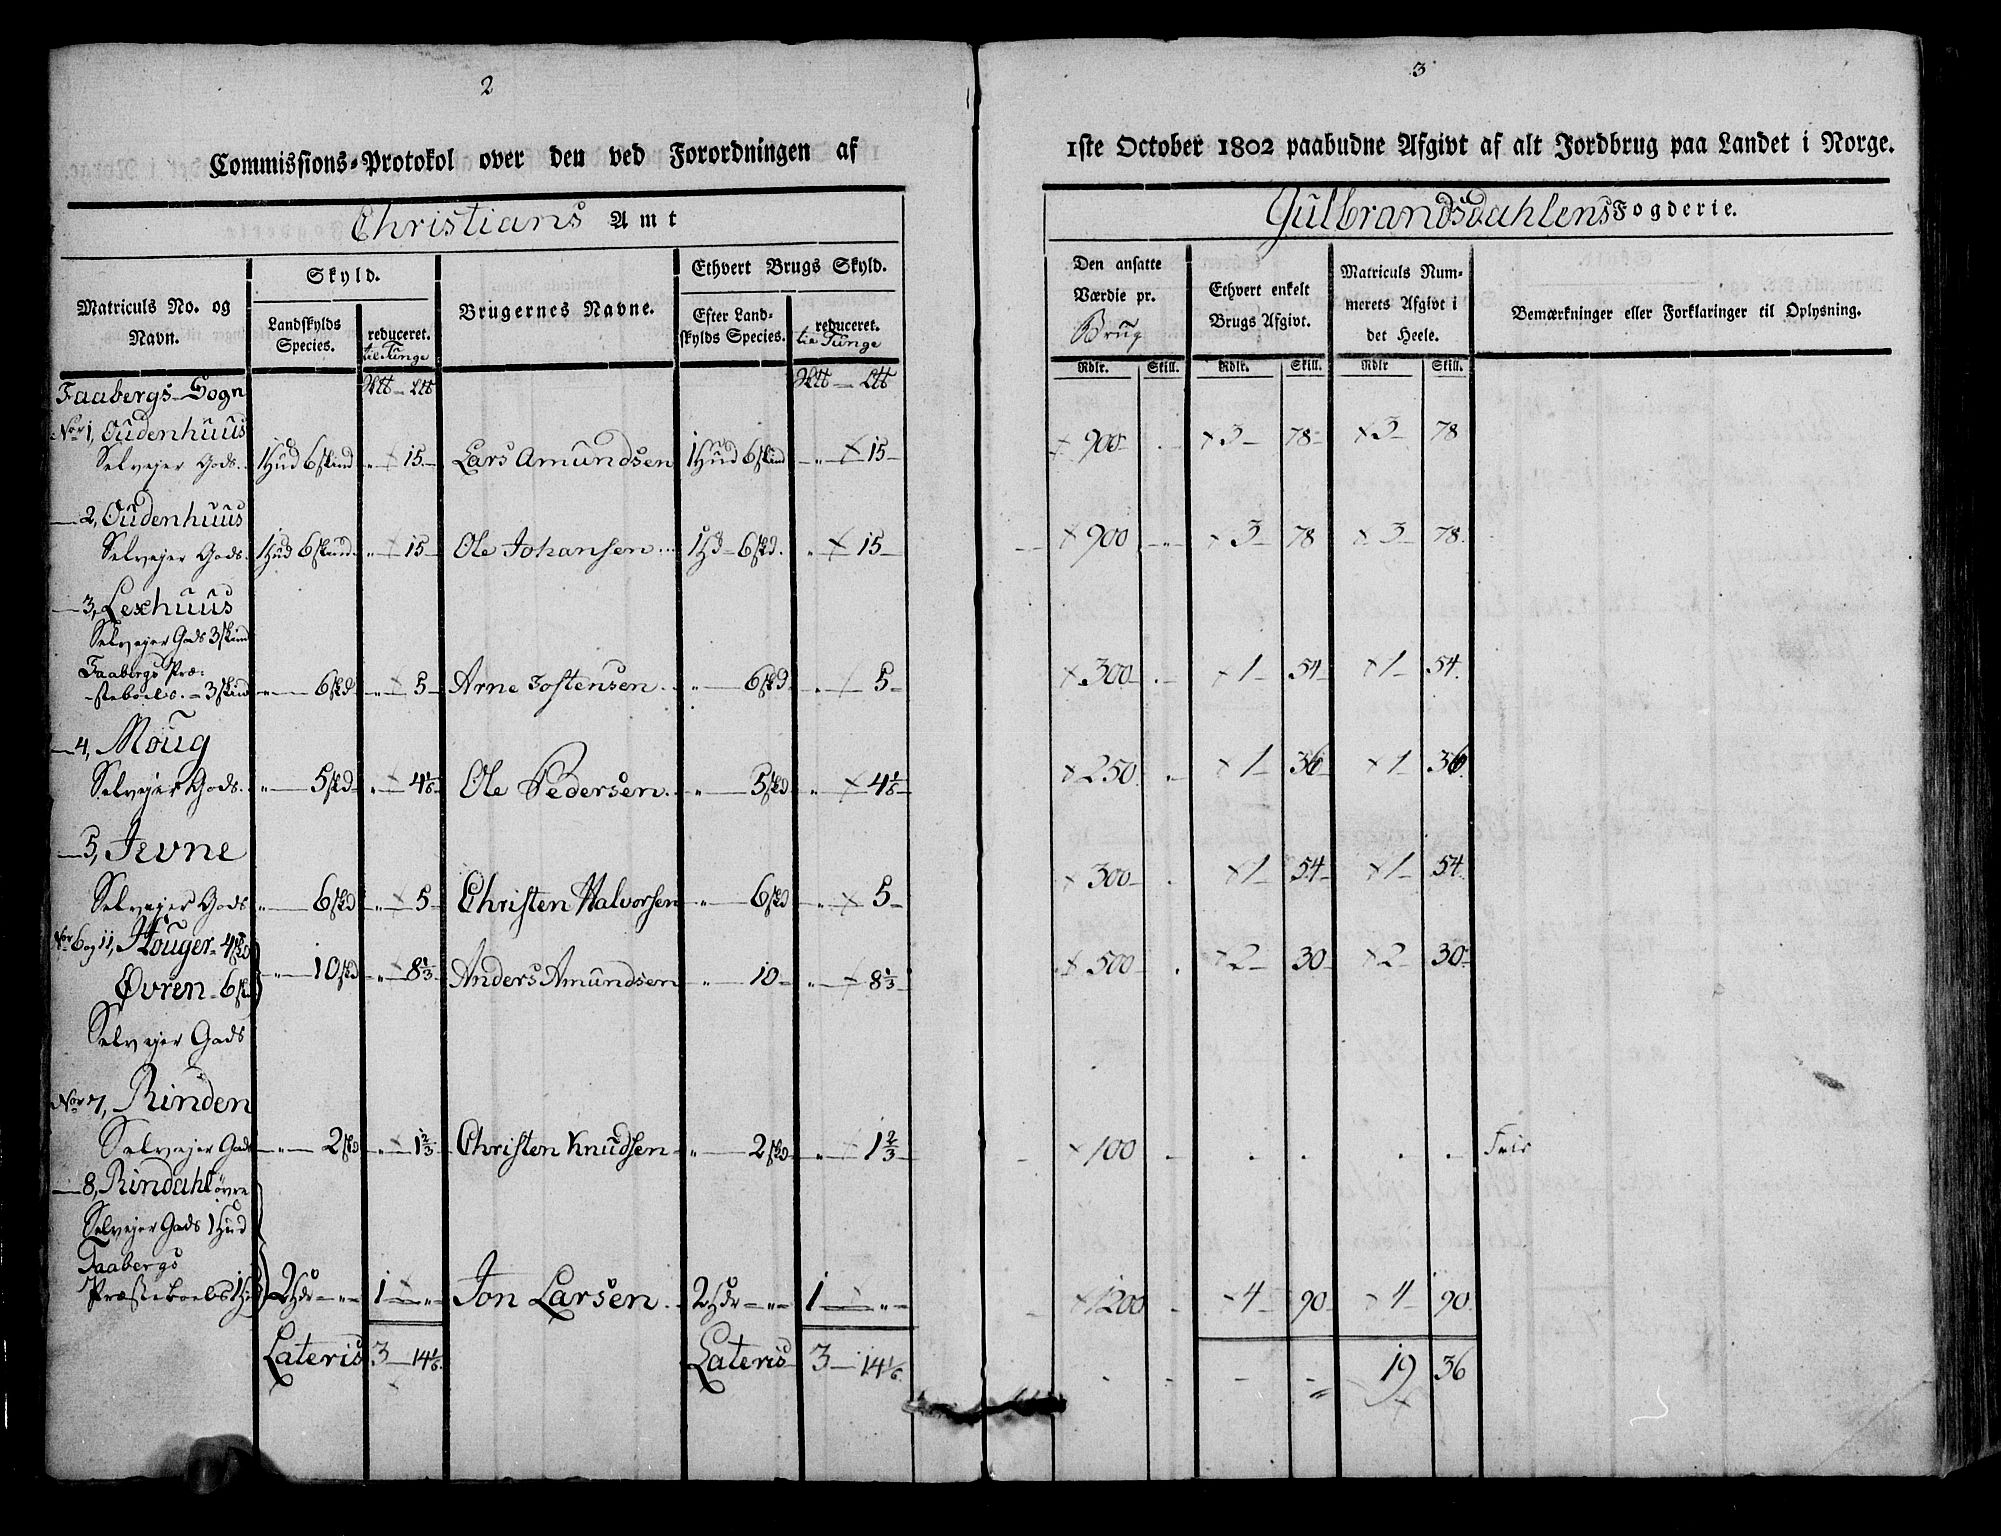 2
Commissions-Protokol over den ved Forordningen af
Christians Amt
Matriculs No. og Navn.
Skyld.
Landskylds Species.
reduceret.
til Tunge
Brugernes Navne.
Ethvert Brugs Skyld.
Efter Landskylds Species.
reduceret.
til Tunge
Faabergs Sogn
No 1, Oudenhuus
Selvejer Gods. 1 Hud 6 skind " 15 Lars Amundsen 1 Hud 6 skind " 15
2, Oudenhuus
Selvejer Gods. 1 Hud 6 skind. " 15 Ole Johansen 1 Hd 6 skd. " 15
3, Lexhuus
Selvejer Gods 3 skind
Faabergs Præ-
steboels. 3 skind " 6 skd " 5 Arne Jostensen. " 6 skd " 5
4, Moug
Selvejer Gods. " 5 skd " 4 1/6 Ole Pedersen. " 5 skd " 4 1/6
5, Jevne
Selvejer Gods " 6 skd " 5 Christen Halvorsen " 6 skd " 5
No 6 og 11, Houger 4 skd
Øvren 6 sk " 10 skd " 8 1/3 Anders Amundsen " 10 " 8 1/3
Selvejer Gods
No 7, Rinden
Selvejer Gods " 2 skd " 1 2/3 Christen Knudsen " 2 skd " 1 2/3
8, Rindahl øvre
Selvejer Gods 1 Hud
Faabergs
Præsteboels 1 H 2 Hdr " " 1 " Jon Larsen. 2 Hdr " " 1 "
Lateris 3 14 1/6 Lateris 3 14 1/6
3
1ste October 1802 paabudne Afgivt af alt Jordbrug paa Landet i Norge.
Gulbrandsdahlens Fogderie.
Den ansatte
Værdie pr.
Brug
Ethvert enkelt
Brugs Afgivt.
Matriculs Num-
merets Afgivt i
det Heele.
Bemærkninger eller Forklaringer til Oplysning.
Rdlr. Skill. Rdlr. Skill. Rdlr Skill.
900 3 78 3 78
900 3 78 3 78
300 1 54 1 54
250 1 36 1 36
300 1 54 1 54
500 2 30 2 30
100 Frie
1200 4 90 4 90
19 36